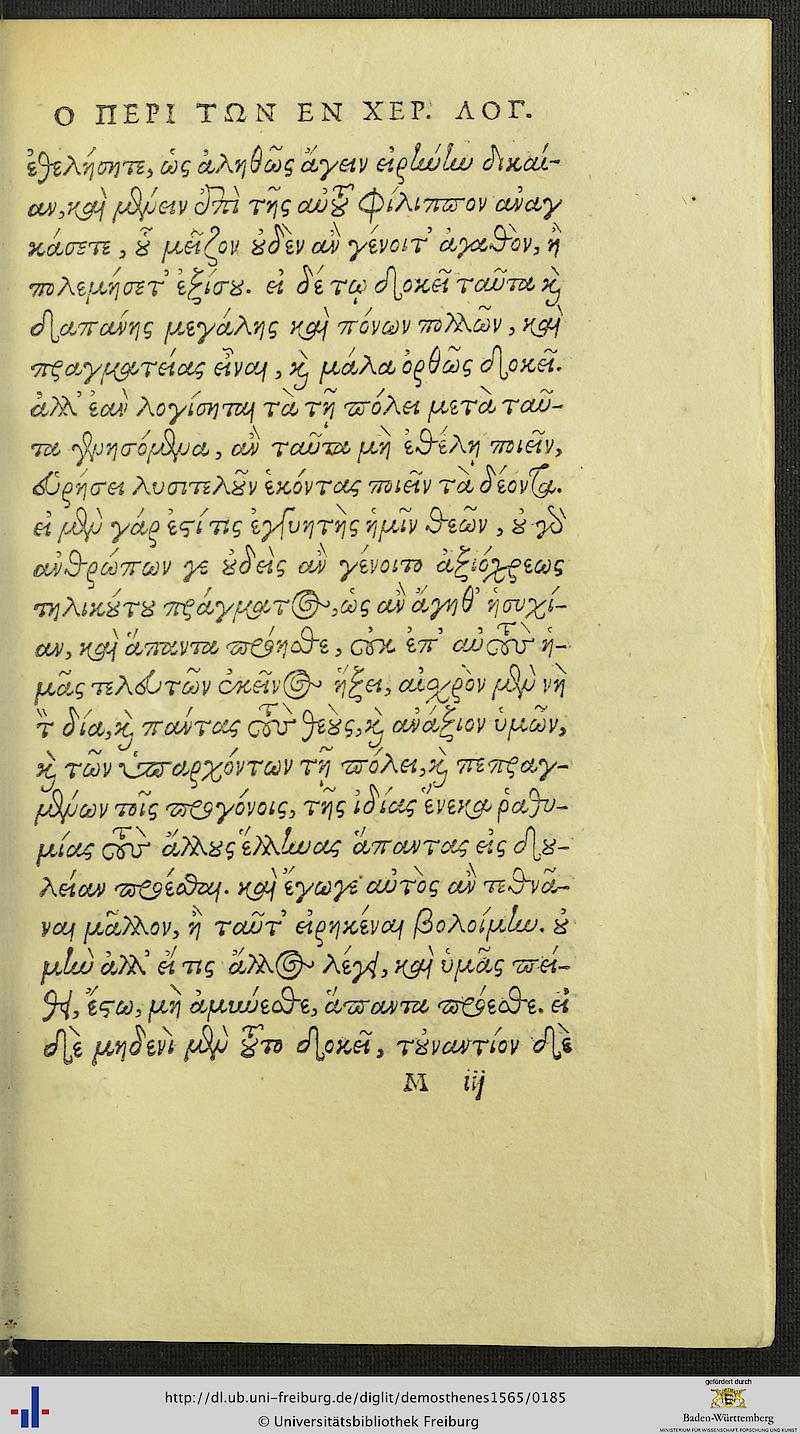 Ο ΠΕΡΙ ΤΩΝ ΕΝ ΧΕΡ. ΛΟΓ.
ἐθελήσητε, ὡς ἀληθῶς ἄγειν εἰρήνην δικαί-
αν, καὶ μένειν ἐπὶ τῆς αὑτοῦ Φίλιππον ἀναγ
κάσετε, οὗ μεῖζον οὐδὲν ἂν γένοιτ' ἀγαθὸν, ἢ
πολεμήσετ' ἐξίσου. εἰ δέ τῳ δοκεῖ ταῦτα καὶ
δαπάνης μεγάλης καὶ πόνων πολλῶν, καὶ
πραγματείας εἶναι, καὶ μάλα ὀρθῶς δοκεῖ.
ἀλλ' ἐὰν λογίσηται τὰ τῇ πόλει μετὰ ταῦ-
τα γενησόμενα, ἂν ταῦτα μὴ ἐθέλῃ ποιεῖν,
εὑρήσει λυσιτελοῦν ἑκόντας ποιεῖν τὰ δέοντα.
εἰ μὲν γάρ ἐστί τις ἐγγυητὴς ἡμῖν θεῶν, οὐ γὰρ
ἀνθρώπων γε οὐδεὶς ἂν γένοιτο ἀξιόχρεως
τηλικούτου πράγματος, ὡς ἂν ἄγηθ' ἡσυχί-
αν, καὶ ἅπαντα πρόησθε, οὐκ ἐπ' αὐτοὺς ἡ-
μᾶς τελευτῶν ἐκεῖνος ἥξει, αἰσχρὸν μὲν νὴ
τὸν δία, καὶ πάντας τοὺς θεοὺς, καὶ ἀνάξιον ὑμῶν,
καὶ τῶν ὑπαρχόντων τῇ πόλει, καὶ πεπραγ-
μένων τοῖς προγόνοις, τῆς ἰδίας ἕνεκα ῥαθυ-
μίας τοὺς ἄλλους ἕλληνας ἅπαντας εἰς δου-
λείαν προέσθαι. καὶ ἔγωγε αὐτὸς ἂν τεθνά-
ναι μᾶλλον, ἢ ταῦτ' εἰρηκέναι βολοίμην. οὐ
μὴν ἀλλ' εἴ τις ἄλλος λέγει, καὶ ὑμᾶς πεί-
θει, ἔστω, μὴ ἀμύνεσθε, ἅπαντα πρόεσθε. εἰ
δὲ μηδενὶ μὲν τοῦτο δοκεῖ, τοὐναντίον δὲ
M iij
gefördert durch
http://dl.ub.uni-freiburg.de/diglit/demosthenes1565/0185
© Universitätsbibliothek Freiburg
Baden-Württemberg
MINISTERIUM FÜR WISSENSCHAFT, FORSCHUNG UND KUNST